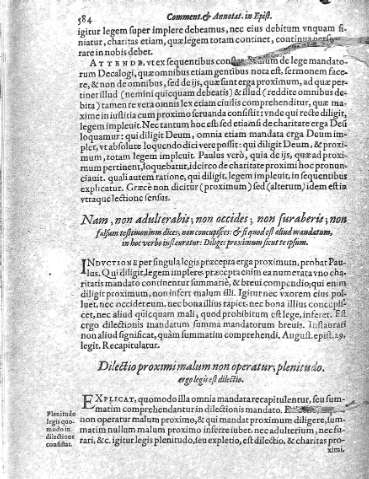 584 Comment. & Annotat. in Epist.
igitur legem super implere debeamus, nec eius debitum vnquam fi-
niatur, charitas etiam, quæ legem totam continet, continua
rare in nobis debet.
ATTENDE, vt ex sequentibus constat, eum de lege mandato-
rum Decalogi, quæ omnibus etiam gentibus nota est, sermonem face-
re, & non de omnibus, sed de ijs, quæ sunt erga proximum, ad quæ per-
tinet illud (nemini quicquam debeatis) & illud (reddite omnibus de-
bita) tamen re vera omnis lex etiam ciuilis comprehenditur, quæ ma-
xime in iustitia cum proximo seruanda consistit: vnde qui recte diligit,
legem impleuit. Nec tantum hoc est, sed etiam si de charitate erga Deū
loquamur: qui diligit Deum, omnia etiam mandata erga Deum im-
pler, vt absolute loquendo dici vere possit: qui diligit Deum, & proxi-
mum, totam legem impleuit. Paulus verò, quia de ijs, quæ ad proxi-
mum pertinent, loquebatur, ideirco de charitate proximi hoc pronun-
ciauit. quali autem ratione, qui diligit, legem impleuit, in sequentibus
explicatur. Græcè non dicitur (proximum) sed (alterum) idem est in
vtraque lectione sensus.
Nam, non adulterabis; non occides; non furaberis; non
falsum testimonium dices; non concupisces: & si quod est aliud mandatum,
in hoc verbo instauratur: Diliges proximum sicut te ipsum.
INDVCTIONE per singula legis præcepta erga proximum, probat Pau-
lus. Qui diligit, legem implere: præcepta enim ea numerata vno cha-
ritatis mandato continentur summatie, & breui compendio; qui enim
diligit proximum, non infert malum illi. Igitur nec vxorem eius pol-
luet, nec occidet eum, nec bona illius rapiet. nec bona illius concupis-
cet, nec aliud quicquam mali, quod prohibitum est lege, inferet. Est
ergo dilectionis mandatum summa mandatorum breuis. Instaurari
non aliud significat, quàm summatim comprehendi. August. epist. 29,
legit. Recapitulatur.
Dilectio proximi malum non operatur; plenitudo.
ergo legis est dilectio.
EXPLICAT, quomodo illa omnia mandata recapitulentur, seu sum-
matim comprehendantur in dilectionis mandato.
non operatur malum proximo, & qui mandat proximum diligere, sum-
matim nullum malum proximo inferre iubet. nec adulterium, nec fu-
rari, &c. igitur legis plenitudo, seu expletio, est dilectio, & charitas pro-
ximi,
Plenitudo
legis quo-
modo in
dilectione
consistat.